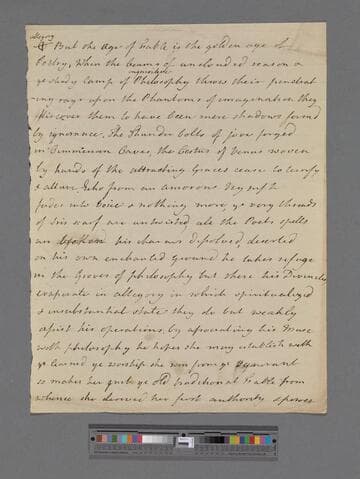 But the Age of Fable is the golden age of
Poetry, When the beams of unclouded reason &
ye steady Lamp of Philosophy throws their penetrat
ing rays upon the Phantoms of imagination they
discover them to have been mere shadows formd
by ignorance, The Thunder bolts of Jove forged
in Cimmerian Caves, the Cestus of Venus woven
by hands of the attracting Graces cease to terrify
& allure Echo from an amorous Nymph
fades into Voice & nothing more, ye very threads
of Iris's scarf are untwisted all the Poets spells
are his charms disolved, deserted
on his own enchanted Ground he takes refuge
in the Groves of philosophy but there his Divinities
evaporate in allegory in which spiritualized
& insubstantial state they do but weakly
assist his operations, by associating his Muse
with philosophy he hopes she may establish with
ye learned ye worship she won from ye Ignorant
so makes her quit ye old traditional Fable from
whence she derived her first authority & power